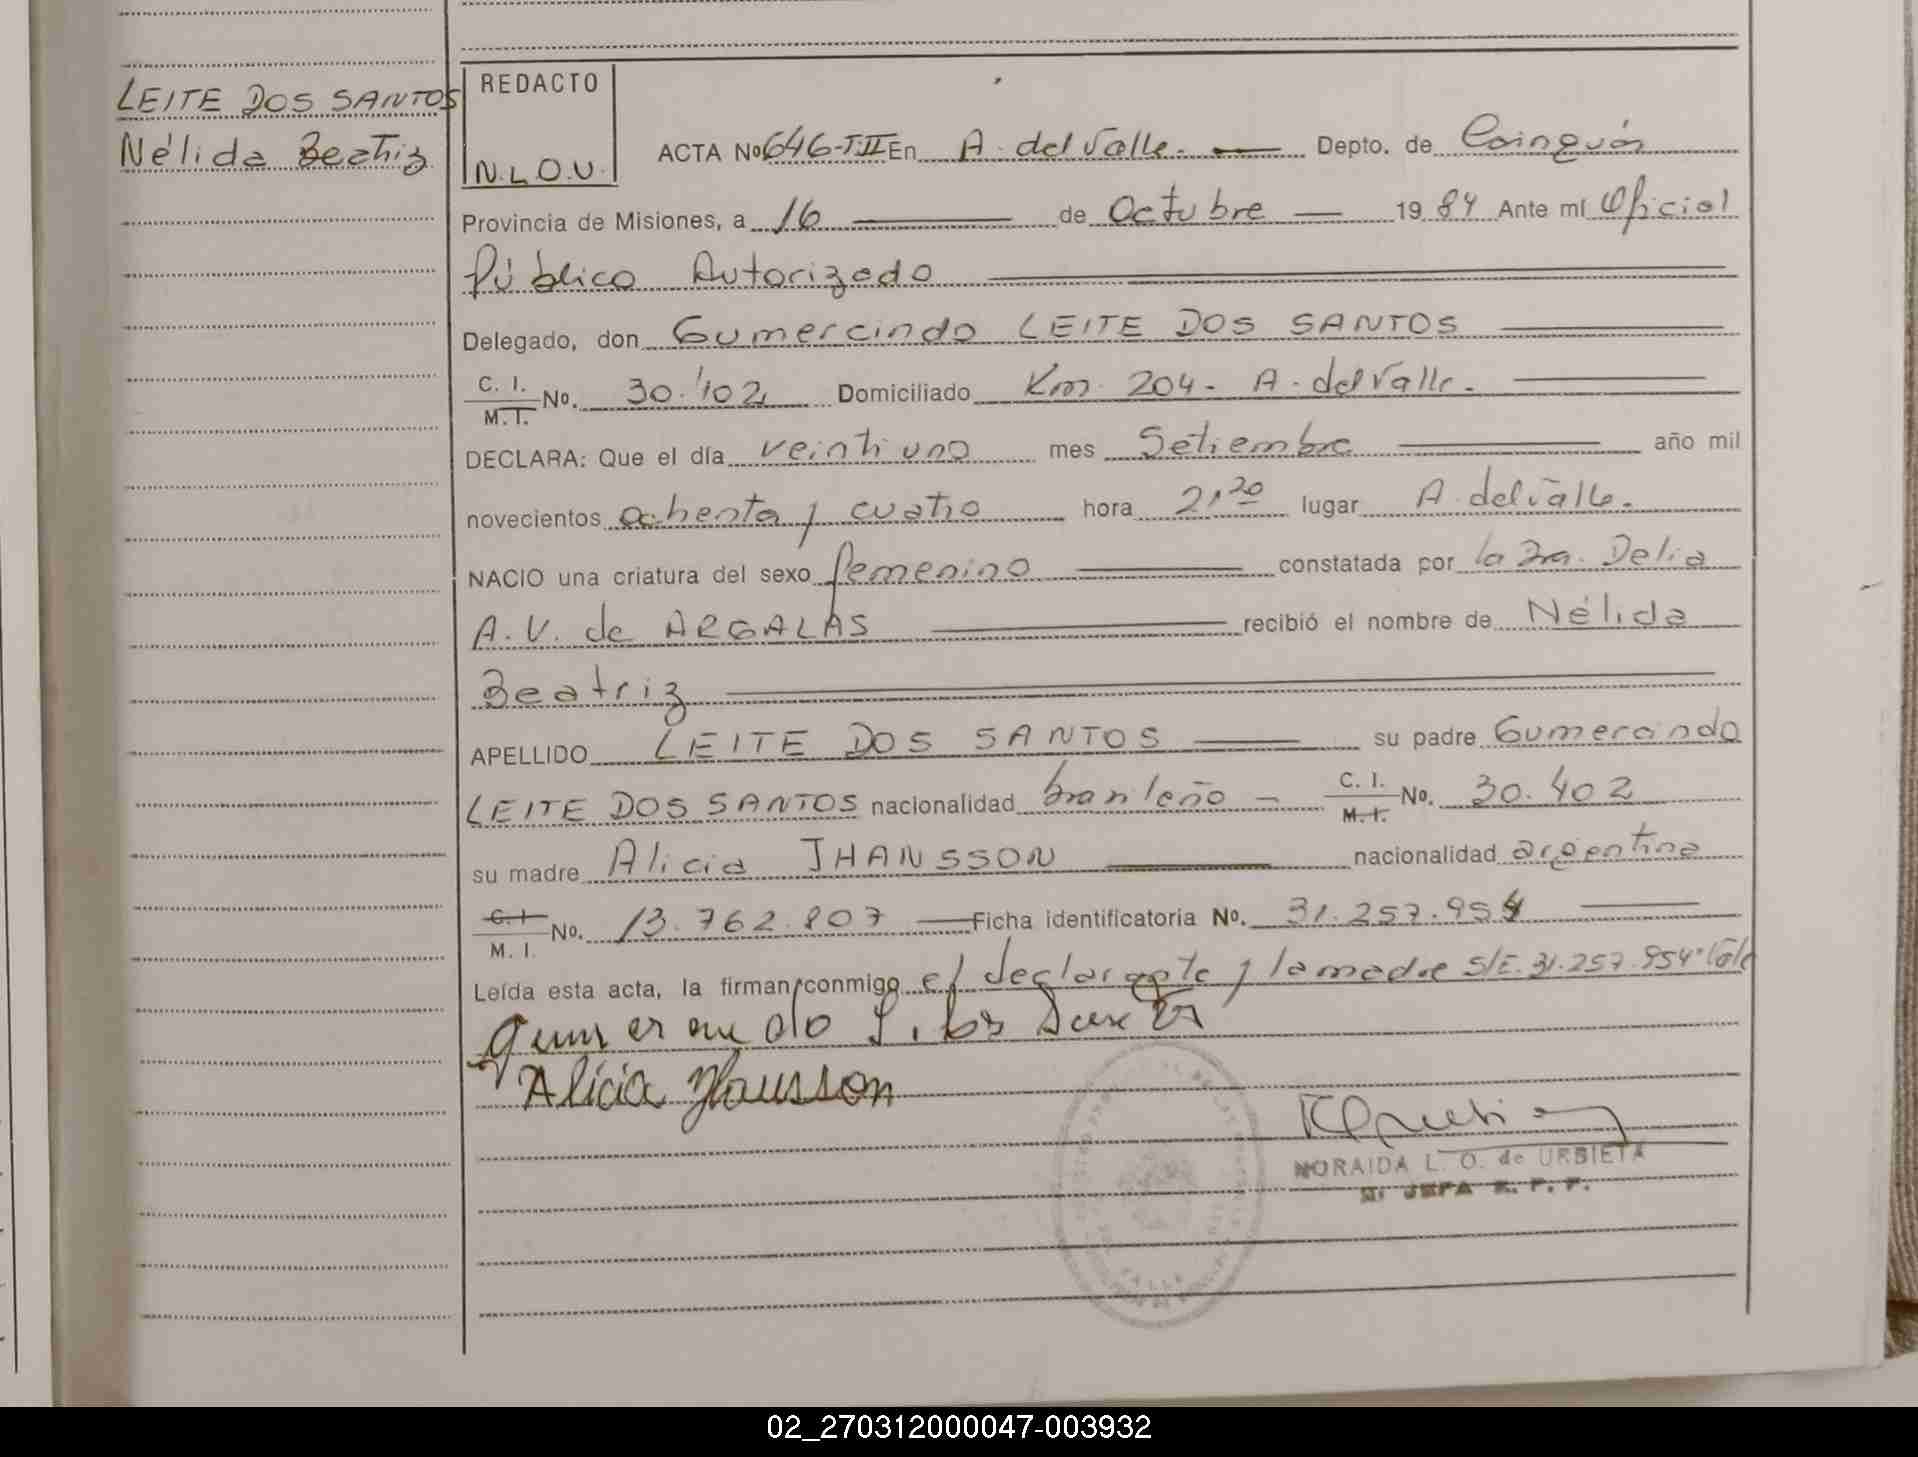 LEITE DOS SANTOS
Nélida Beatriz
REDACTO
N.L.O.U.
ACTA Nº 646-T.III En A. del Valle. Depto. de Cainguás
Provincia de Misiones, a 16 de Octubre 1984 Ante mí Oficial
Público Autorizado
Delegado, don Gumercindo LEITE DOS SANTOS
C. I. M. I. Nº. 30.402 Domiciliado Km. 204- A. del Valle.
DECLARA: Que el día veintiuno mes Setiembre año mil
novecientos ochenta y cuatro hora 21,20 lugar A. del Valle.
NACIO una criatura del sexo femenino constatada por la Dra. Delia
A.V. de ARGALAS recibió el nombre de Nélida
Beatriz
APELLIDO LEITE DOS SANTOS su padre Gumercindo
LEITE DOS SANTOS nacionalidad brasileño - C. I. M. I. Nº. 30.402
su madre Alicia JHANSSON nacionalidad argentina
C. I. M. I. Nº. 13.762.807 Ficha identificatoria Nº. 31.257.954
Leída esta acta, la firman conmigo el declarante y la madre S/E. 31.257.954 "Vale
Alicia Jhansson
NORAIDA L. O. de URBIETA
JEFA
VALLE
02_270312000047-003932